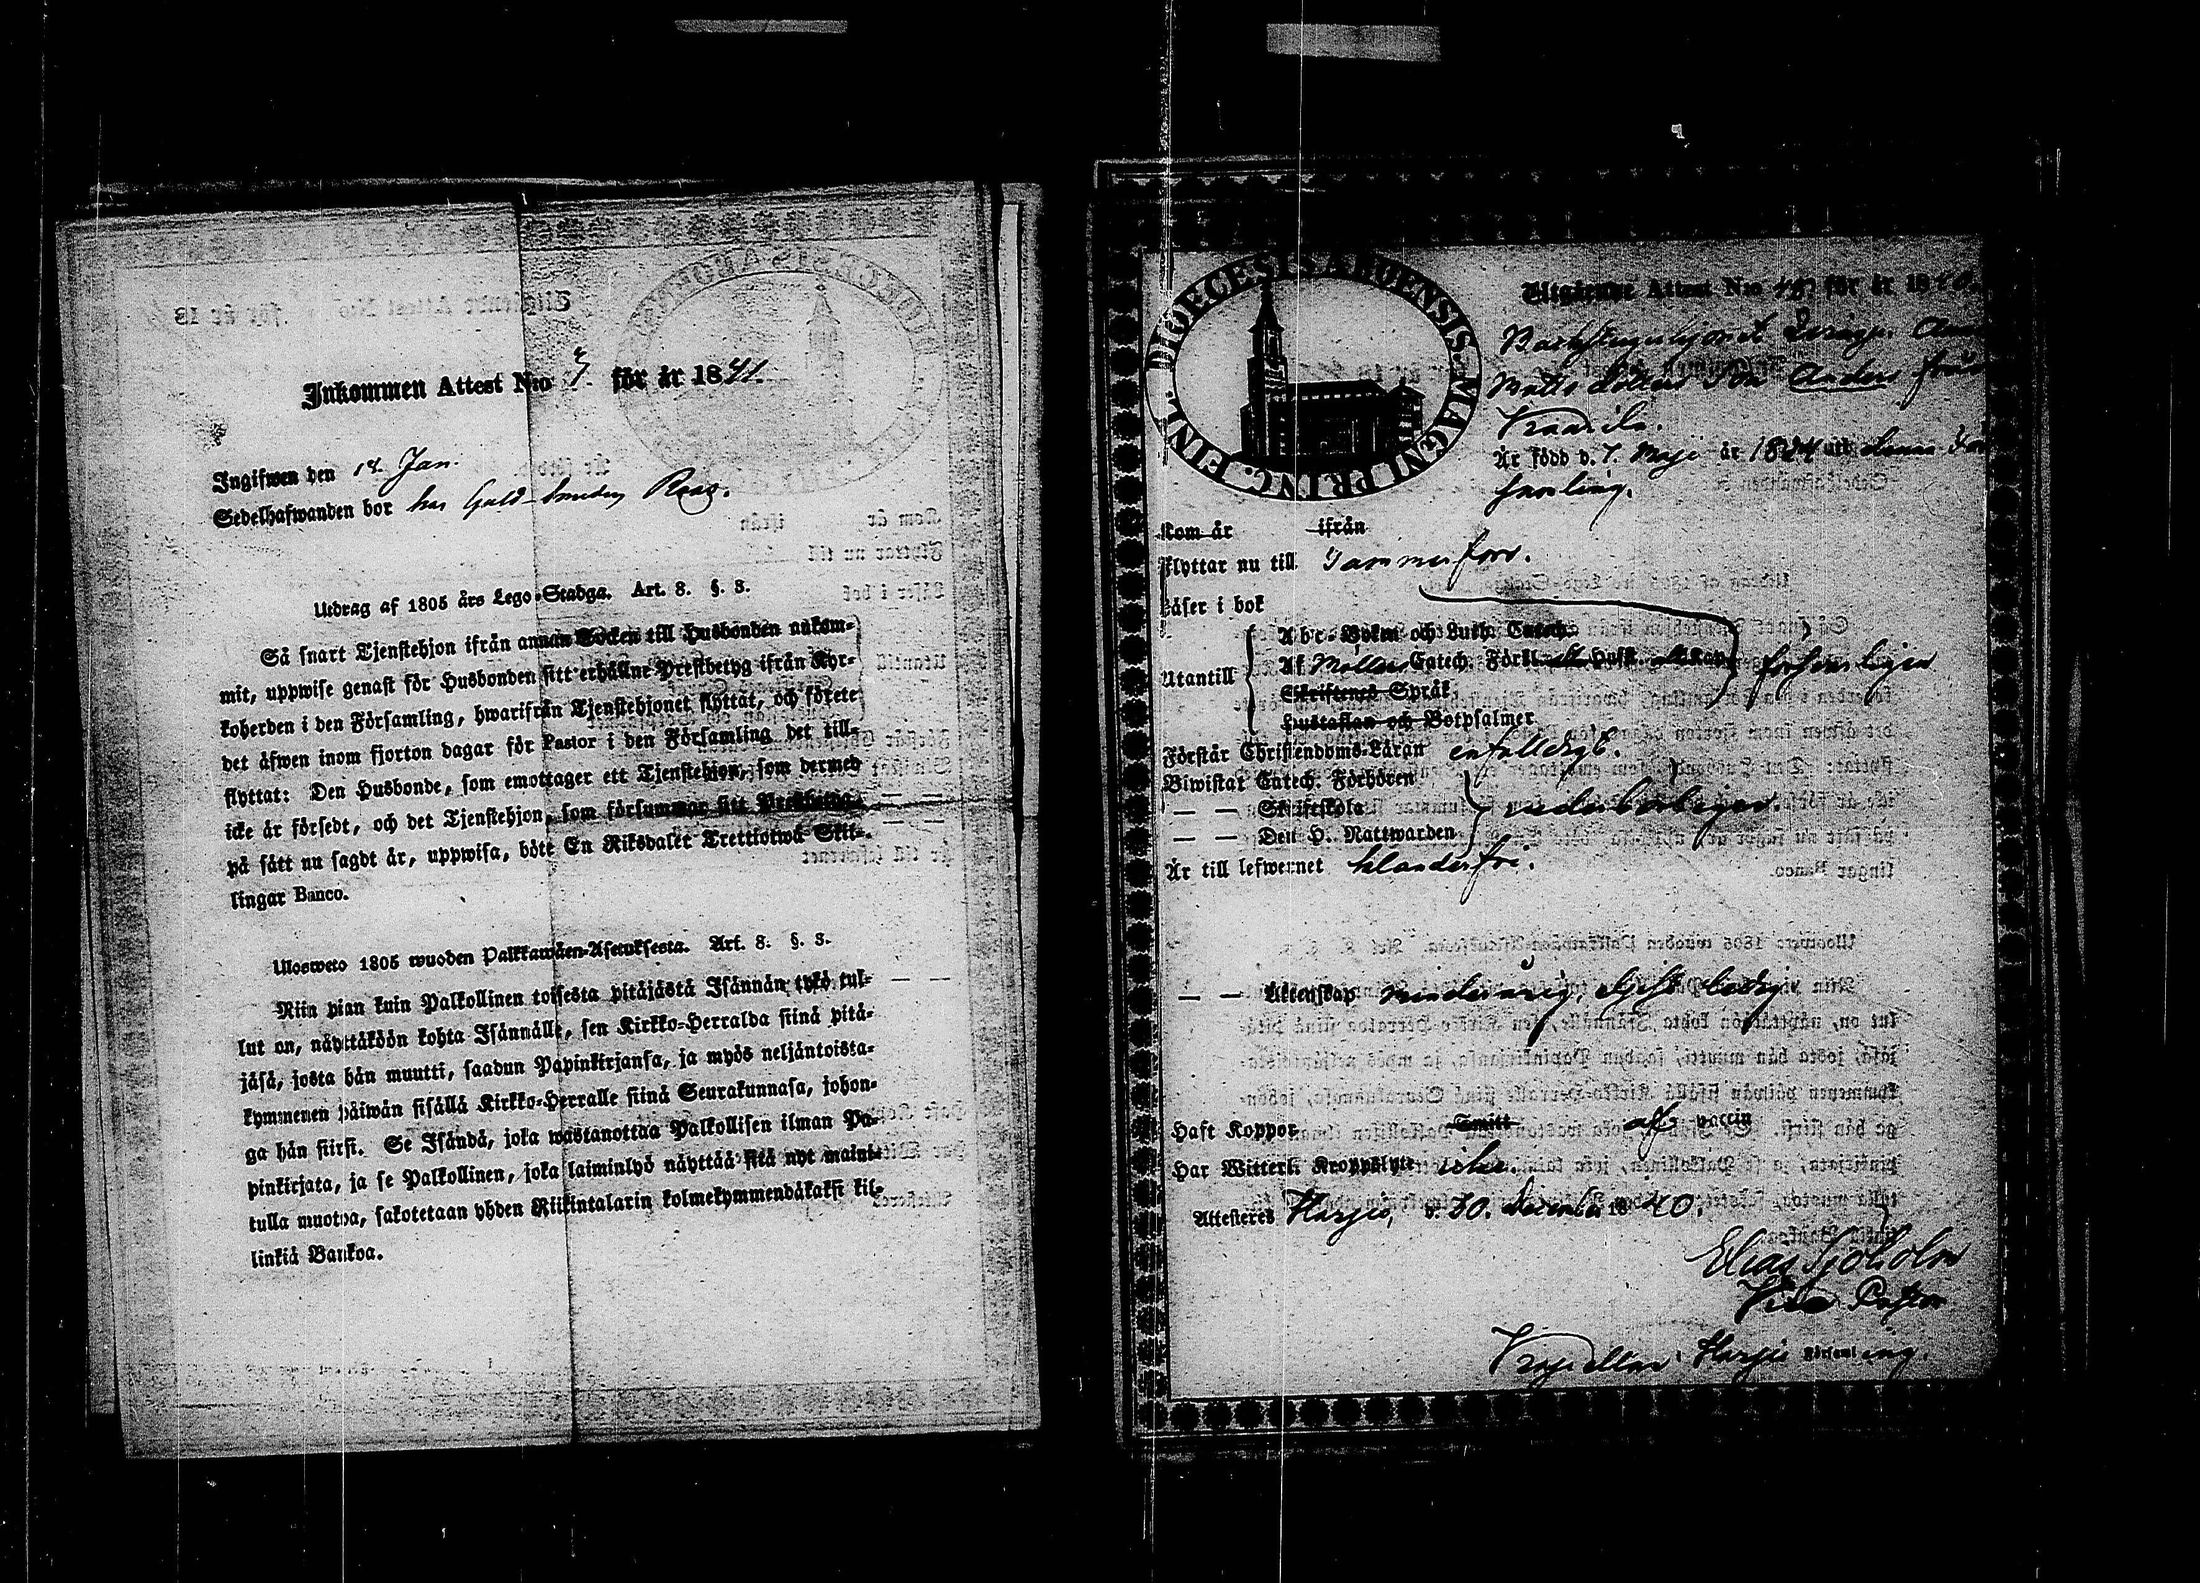 Inkommen Attest N:o 7 för år 1841.
Ingifwen den 18 Jan.
Sedelhafwanden bor hos Guldsmeden
Utdrag af 1805 års Lego-Stadga. Art. 8. §. 3.
Så snart Tjenstehjon ifrån annan Socken till Husbonden ankom-
mit, uppwise genast för Husbonden sitt erhållne Prestbetyg ifrån Kyr-
koherden i den Församling, hwarifrån Tjenstehjonet flyttat, och förete
det äfwen inom fjorton dagar för Pastor i den Församling det till-
flyttat: Den Husbonde, som emottager ett Tjenstehjon, som dermed
icke är försedt, och det Tjenstehjon, som försummar sitt Prestbetyg,
på sätt nu sagdt är, uppwisa, böte En Riksdaler Trettiotwå Skil-
lingar Banco.
Ulosweto 1805 wuoden Palkkawäen-Asetuksesta. Art. 8. §. 3.
Niin pian kuin Palkollinen toisesta pitäjästä Isännän tykö tul-
lut on, näyttäköön kohta Isännälle, sen Kirkko-Herralda siinä pitä-
jäsä, josta hän muutti, saadun Papinkirjansa, ja myös neljäntoista-
kymmenen päiwän sisällä Kirkko-Herralle siinä Seurakunnasa, johon-
ga hän siirsi. Se Isändä, joka wastanottaa Palkollisen ilman Pa-
pinkirjata, ja se Palkollinen, joka laiminlyö näyttää sitä nyt maini-
tulla muotoa, sakotetaan yhden Riikintalarin kolmekymmendäkaksi kil-
linkiä Bankoa.
DIOECESIS ABOENSIS. MAGNI PRINC. FINL.
Utgående Attest N:o för år 1840.
Matts son Anders från
Är född d. 7 Maji år 1824 uti
Kom år ifrån
Flyttar nu till Tammerfors.
Läser i bok
Utantill
Abc-Boken och Luth. Catech.
Af Möllers Catech. Förkl. Husk.
Skriftenes Språk,
Hustaflan och Botpsalmer
försvarligen
Förstår Christendoms-Läran enfalldigt.
Biwistat Catech. Förhören
— — Skriftskola
— — Den H. Nattwarden
vederbörligen
Är till lefwernet klanderfri.
— — Äktenskap minderårig, ledig
Haft Koppor Smitt af vaccin
Har Witterl. Kroppslyte icke.
Attesteres Harjis, d. 30. December 1840.
Elias Sjöholm
Vice Pastor
Kapellan i Harjis Församling.